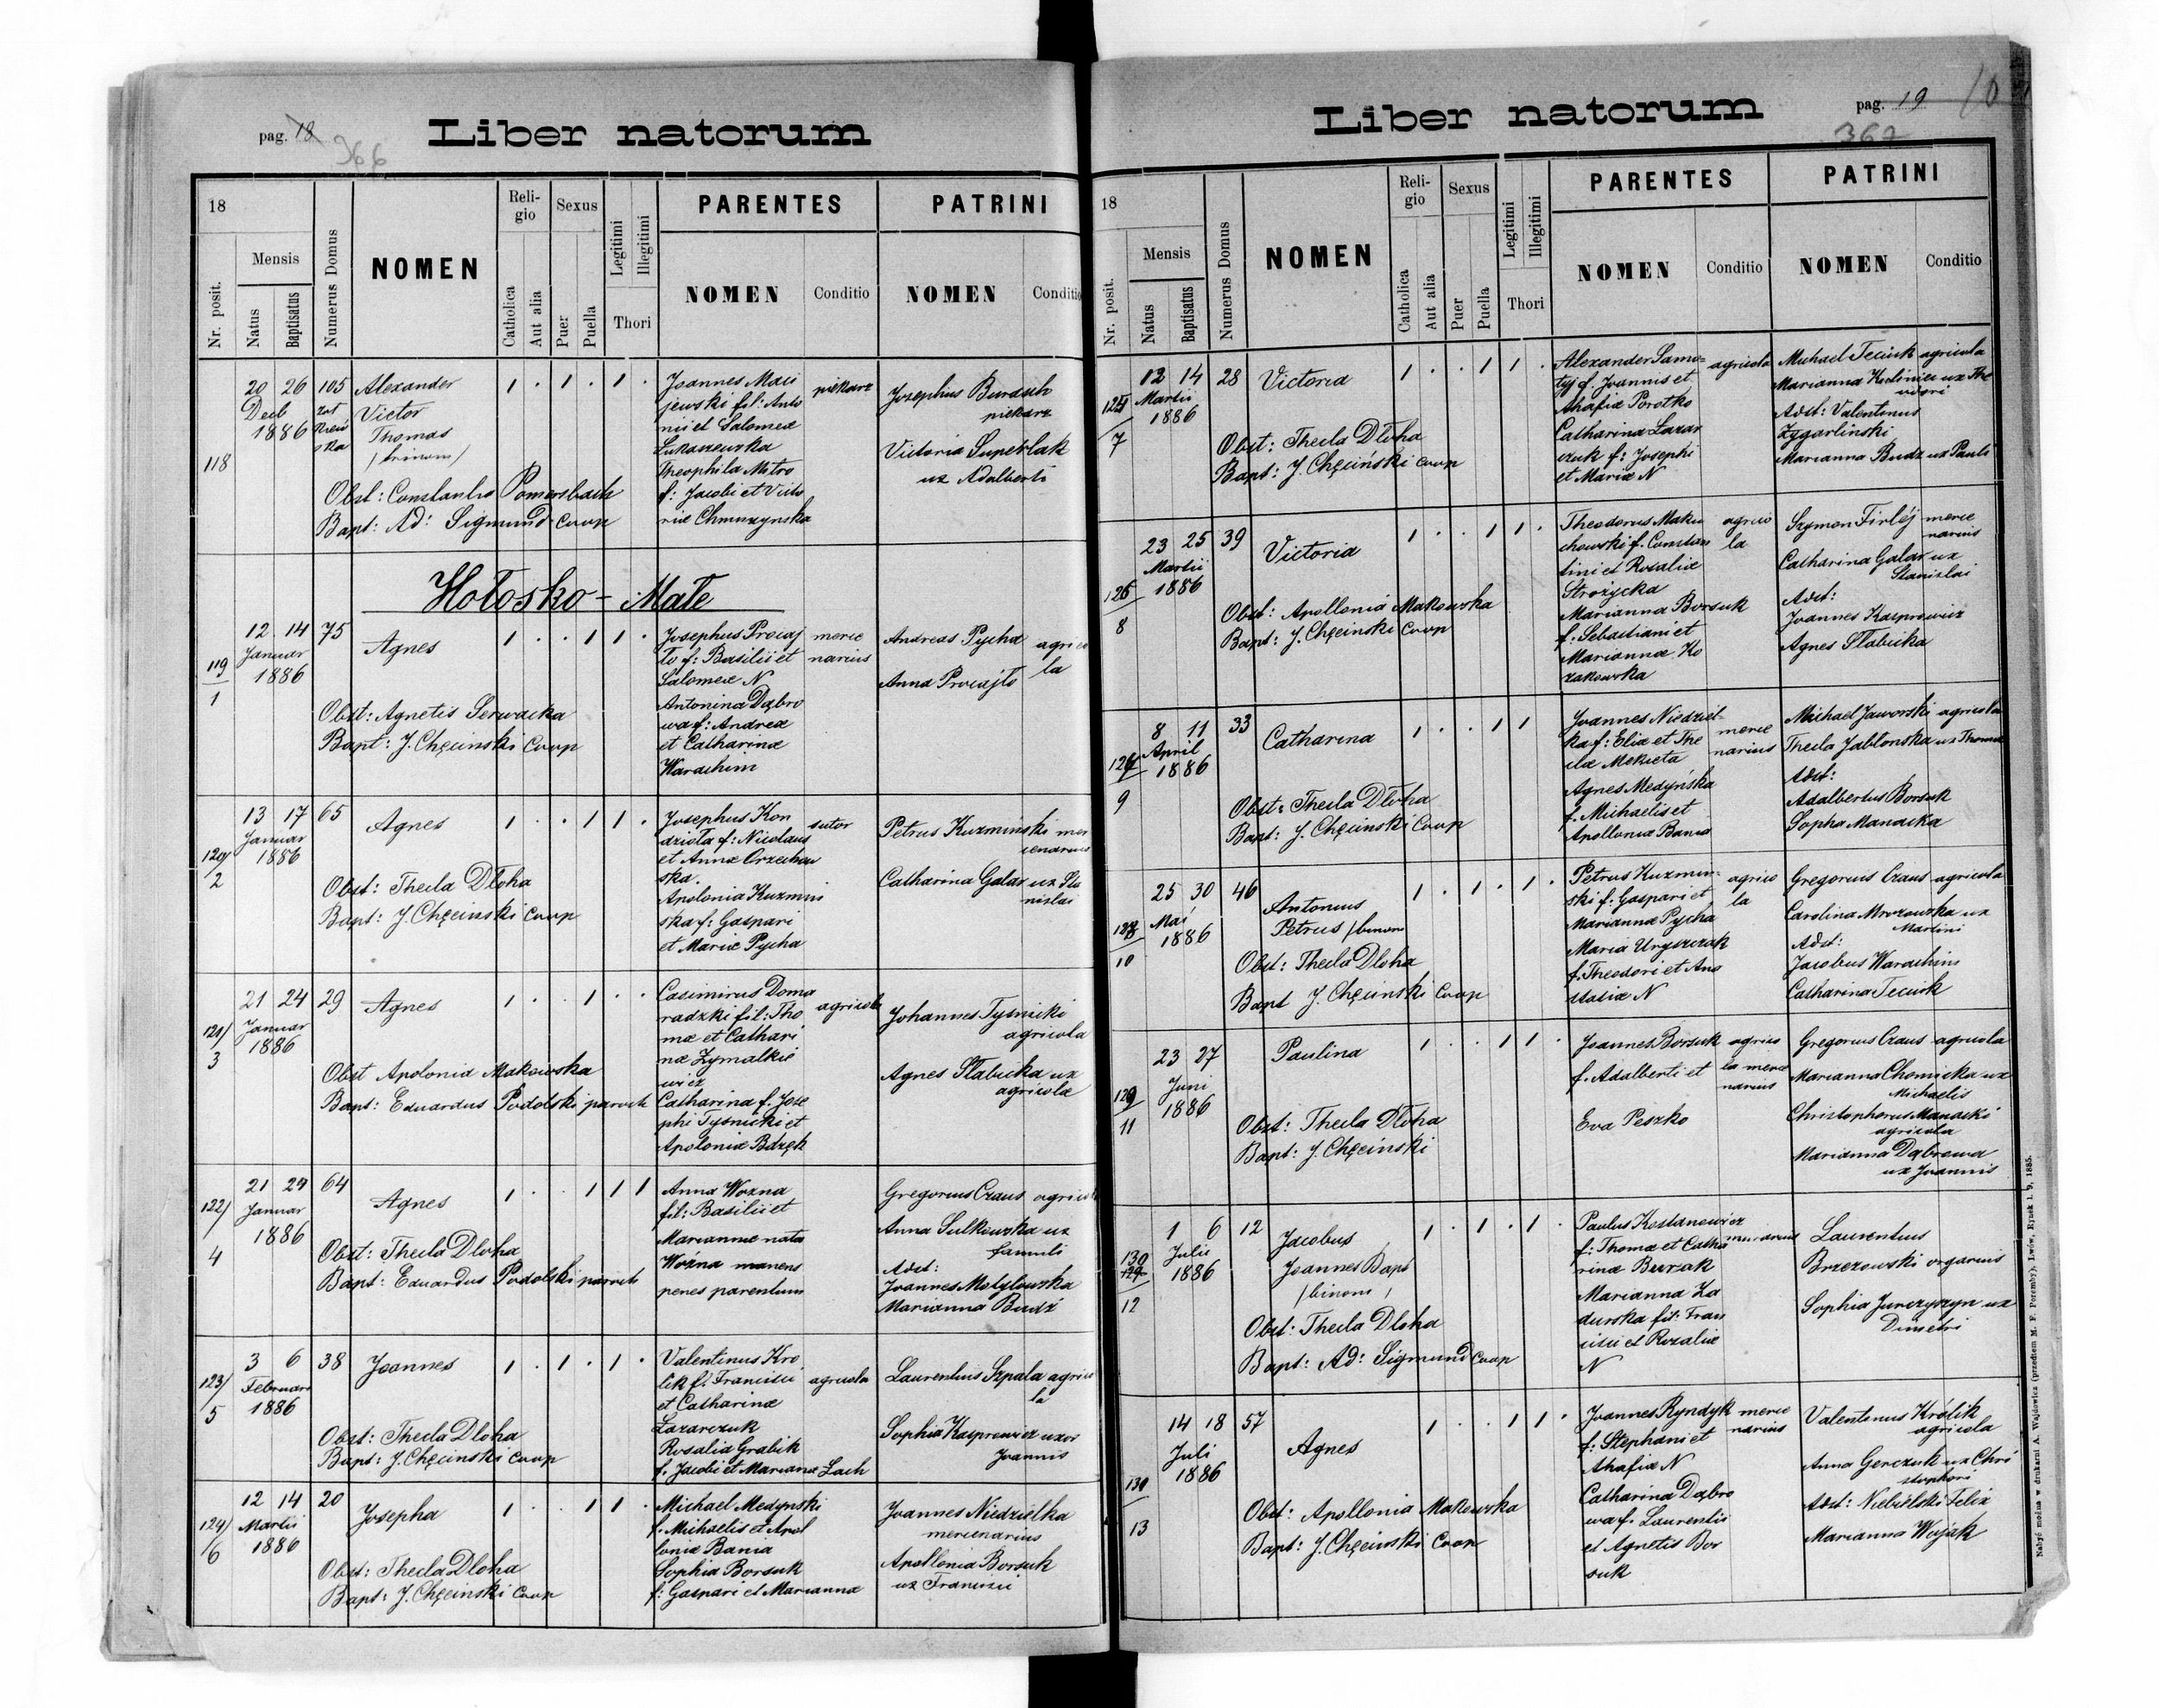 pag. 18
366
Liber natorum
18
Mensis
Nr. posit.
Natus
Baptisatus
Numerus Domus
NOMEN
Reli-
gio
Catholica
Aut alia
Sexus
Puer
Puella
Legitimi
Illegitimi
Thori
PARENTES
NOMEN
Conditio
PATRINI
NOMEN
Conditio
118
20 26 105 Alexander 1 . 1 . 1 .
Decb
1886
Victor
Thomas
/trinom/
Obst: Constantia Pomersbach
Bapt: Ad: Sigmund Coop
Joannes Maci
jewski fil: Anto
nii et Salomeæ
Łukaszewska
Theophila Mitro
f: Jacobi et Victo
riæ Chmurzynska
piekarz
Josephus Burdsch
piekarz
Victoria Superlak
ux Adalberti
Hołosko - Małe
119
1
12 14 75 Agnes 1 . . 1 1 .
Januar
1886
Obst: Agnetis Serwacka
Bapt: J. Chęcinski Coop
Josephus Prociaj
ło f: Basilii et
Salomeæ N
Antonina Dąbro
wa f: Andreæ
et Catharinæ
Warachim
merce
narius
Andreas Pycha agrico
la
Anna Prociajło
120/
2
13 17 65 Agnes 1 . . 1 1 .
Januar
1886
Obst: Thecla Dłoha
Bapt: J. Chęcinski Coop
Josephus Kon
dziola f: Nicolaus
et Annæ Orzechow
ska.
Apolonia Kuzmin
ska f: Gaspari
et Mariæ Pycha
sutor
Petrus Kuzminski mer
cenarius
Catharina Galas ux Sta
nislai
121/
3
21 24 29 Agnes 1 . . 1 . .
Januar
1886
Obst Apolonia Makowska
Bapt: Eduardus Podolski paroch
Casimirus Doma
radzki fil: Tho
mæ et Cathari
næ Zymalkie
wicz
Catharina f. Jose
phi Tysnicki et
Apoloniæ Bdzęk
agricola
Johannes Tysnicki
agricola
Agnes Słabicka ux
agricolæ
122/
4
21 24 64 Agnes 1 . . 1 1 1
Januar
1886
Obst: Thecla Dłoha
Bapt: Eduardus Podolski paroch
Anna Wozna
fil: Basilii et
Mariannæ nata
Wózna manens
penes parentum
Gregorius Craus agricola
Anna Sulkowska ux
famuli
Adst:
Joannes Motylowska
Marianna Budź
123/
5
3 6 38 Joannes 1 . 1 . 1 .
Februar
1886
Obst: Thecla Dłoha
Bapt: J. Chęcinski Coop
Valentinus Kro
lik f. Francisci
et Catharinæ
Łazarczuk
Rosalia Grabik
f. Jacobi et Mariannæ Lach
agricola
Laurentius Szpala agrico
la
Sophia Kasprowicz uxor
Joannis
124/
6
12 14 20 Josepha 1 . . 1 1 .
Martii
1886
Obst: Thecla Dłoha
Bapt: J. Chęcinski Coop
Michael Medynski
f. Michaelis et Apol
loniæ Bania
Sophia Borsuk
f: Gaspari et Marianna
Joannes Niedzielka
mercenarius
Apollonia Borsuk
ux Francisci
pag. 19
367
Liber natorum
18
Mensis
Nr. posit.
Natus
Baptisatus
Numerus Domus
NOMEN
Reli-
gio
Catholica
Aut alia
Sexus
Puer
Puella
Legitimi
Illegitimi
Thori
PARENTES
NOMEN
Conditio
PATRINI
NOMEN
Conditio
7
12 14 28 Victoria 1 . . 1 1 .
Martii
1886
Obst: Thecla Dłoha
Bapt: J. Chęciński Coop
Alexander Samo-
tyj f. Joannis et
Ahafiæ Porotko
Catharina Lazar
czuk f: Josephi
et Mariæ N
agricola
Michael Teciuk agricola
Marianna Kuliniec ux The
odori
Adst: Valentinus
Zygarlinski
Marianna Budz ux Pauli
8
23 25 39 Victoria 1 . . 1 1 .
Martii
1886
Obst: Apollonia Makowska
Bapt: J. Chęcinski Coop
Theodorus Maku
chowski f. Constan
tini et Rosaliæ
Strozycka
Marianna Borsuk
f. Sebastiani et
Mariannæ Ko
zakowska
agrico
la
Szymon Firlej merce
narius
Catharina Galas ux
Stanislai
Adst:
Joannes Kasprowicz
Agnes Słabicka
9
8 11 33 Catharina 1 . . 1 1
April
1886
Obst: Thecla Dłoha
Bapt: J. Chęcinski Coop
Joannes Niedziel-
ka f: Eliæ et The
clæ Mekieta
Agnes Medyńska
f. Michaelis et
Apollonia Bania
merce
narius
Michael Jaworski agricola
Thecla Jablonska ux Thomæ
Adst:
Adalbertus Borsuk
Sopha Manacka
10
25 30 46 Antonius 1 . 1 . 1 .
Mai
1886
Petrus /binom
Obst: Thecla Dłoha
Bapt J. Chęcinski Coop
Petrus Kuzmin-
ski f. Gaspari et
Marianna Pycha
Maria Uryszczak
f. Theodori et Ana
stasiæ N
agrico
la
Gregorius Craus agricola
Carolina Mrozowska ux
Martini
Adst:
Jacobus Warachim
Catharina Teciuk
11
23 27 Paulina 1 . . 1 1 .
Juni
1886
Obst: Thecla Dłoha
Bapt: J. Chęciński
Joannes Borsuk
f. Adalberti et
Eva Peszko
agrico
la merce
narius
Gregorius Craus agricola
Marianna Chomicka ux
Michaelis
Christophorus Manacki
agricola
Marianna Dąbrowa
ux Joannis
130
12
1 6 12 Jacobus 1 . 1 . 1 .
Julii
1886
Joannes Bapt
/binom/
Obst: Thecla Dłoha
Bapt: Ad: Sigmund Coop
Paulus Kostanowicz
f: Thomæ et Catha
rinæ Burzak
Marianna Za
durska fil: Fran
cisci et Rozaliæ
N
murarius
Laurentius
Brzezowski
Sophia Jurczyszyn ux
Dimetri
13
14 18 57 Agnes 1 . . 1 1 .
Juli
1886
Obst: Apollonia Makowska
Bapt: J. Chęcinski Coop
Joannes Ryndyk
f: Stephani et
Ahafiæ N
Catharina Dąbro
wa f. Laurentii
et Agnetis Bor
suk
merce
narius
Valentinus Królik
agricola
Anna Gerczuk ux Chri
stophori
Adst: Niebilski Felix
Marianna Wojak
Nabyć można w drukarni A. Wajdowicz (przedtem M. F. Poremby), Lwów, Rynek l. 9, 1885.